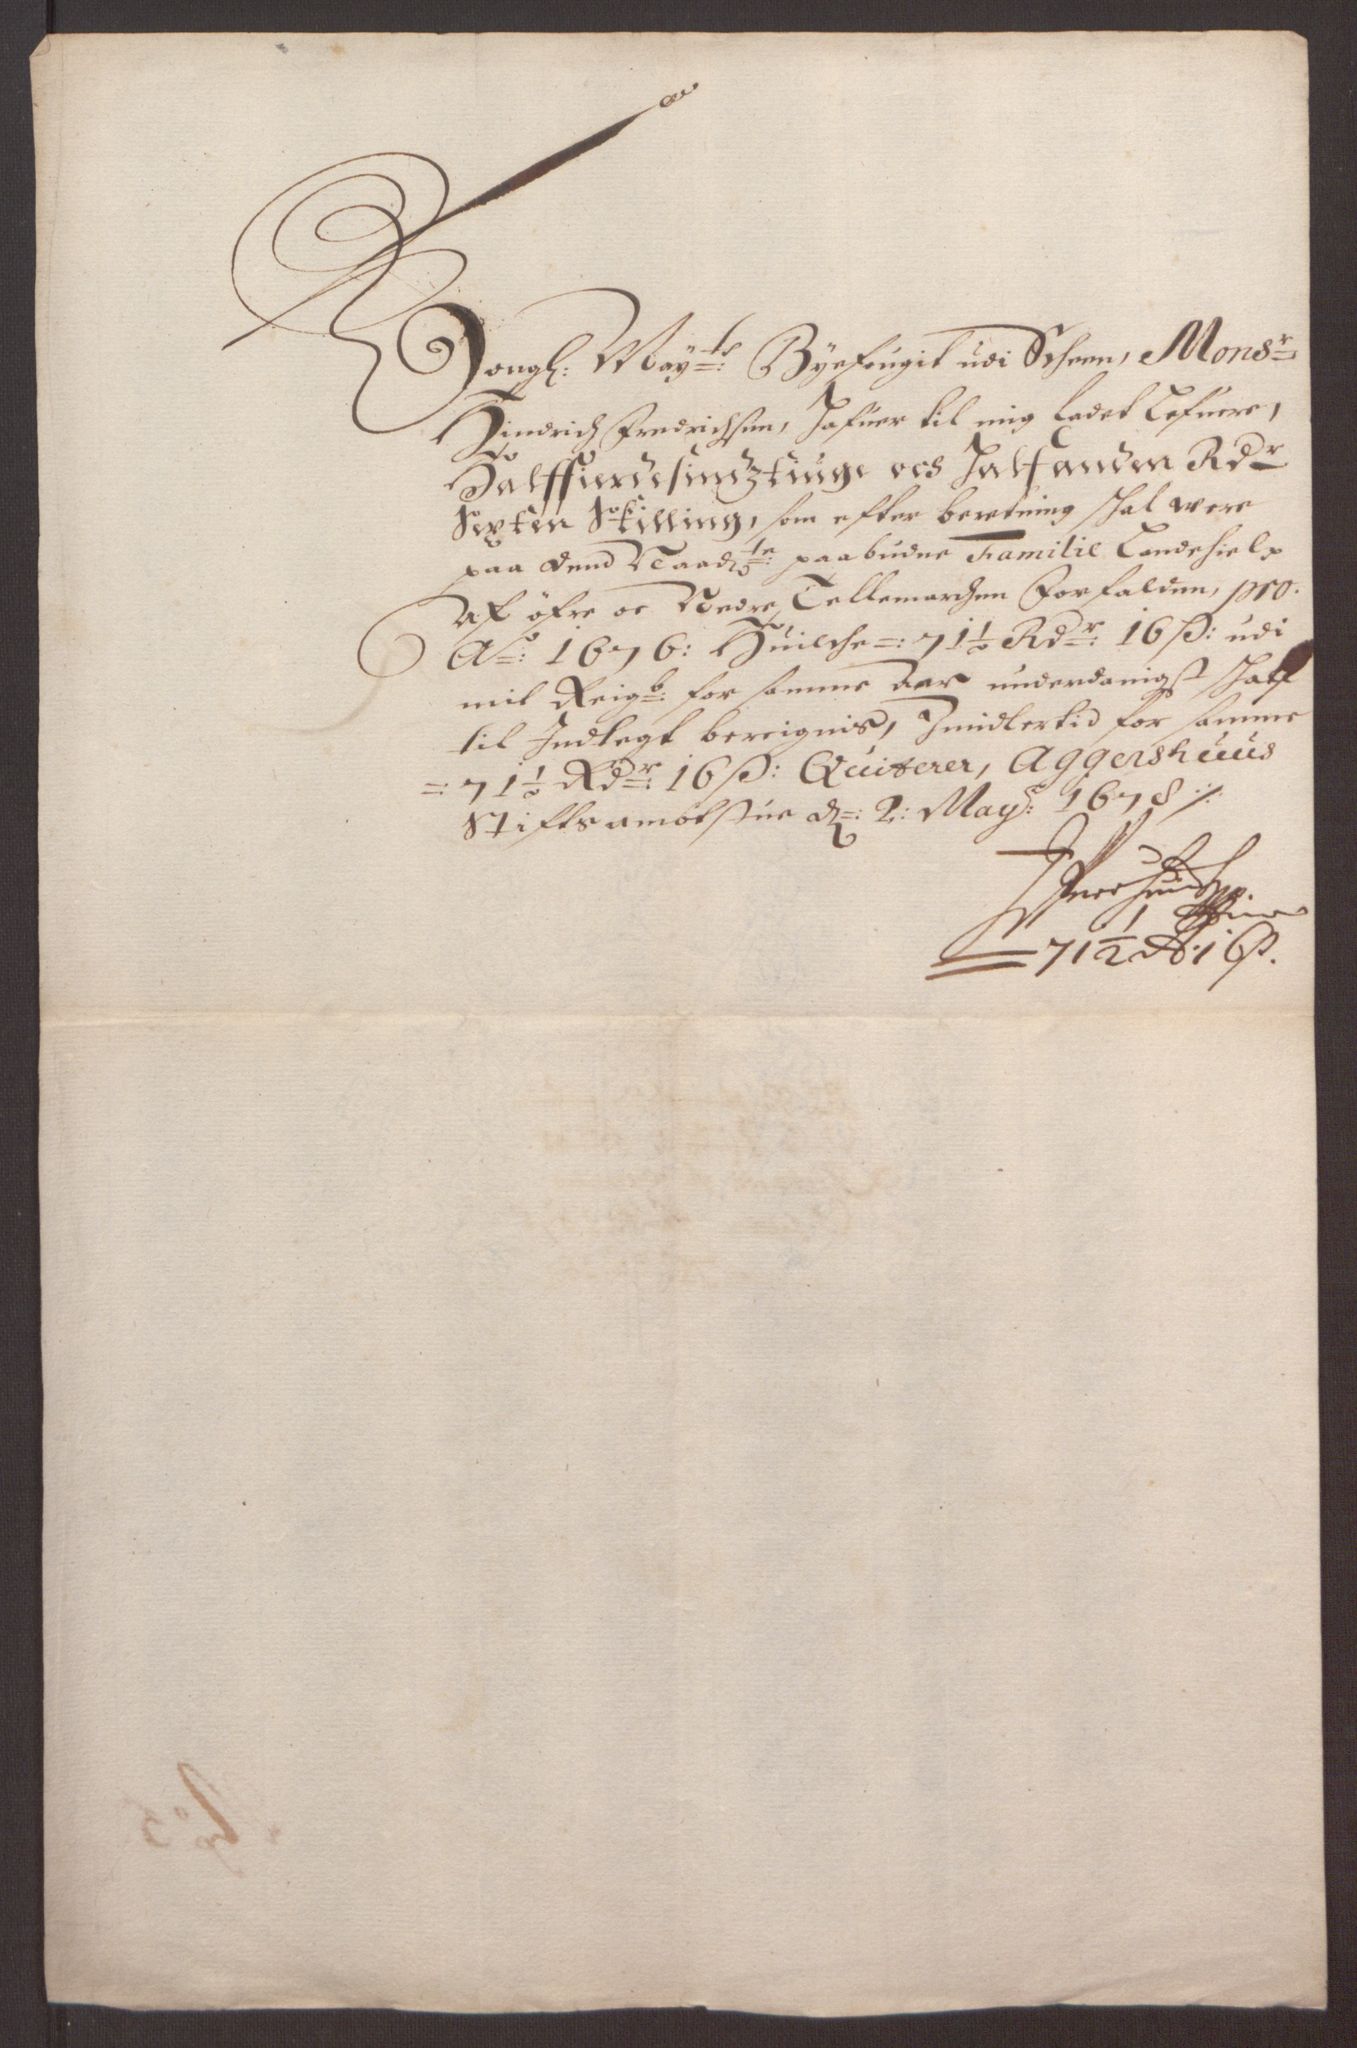 Kongl: Mayts: Byefougit udi Scheen, Monsr:
Hindrich Fredrichsen, hafuer til mig ladet lefuere,
Halffierdesindztiuge och halfanden Rdr
Sexten Skilling, som efter beretning schal were
paa dend Naadte: paabudne Familie Landehielp
Af öfre oc Nedre Tellemarchen forfalden, pro.
Ao: 1676: Huilche =: 71½ Rdr: 16 ß: udi
mit Reigb: for samme aar underdanigst schall
til Indtegt bereignis, Imidlertid for samme
=: 71½ Rdr: 16 ß: Quiterer, Aggershuus
Stiftsamotstue d: 2: May: 1678 ./.
71½ Rd 16 ß.
No 3